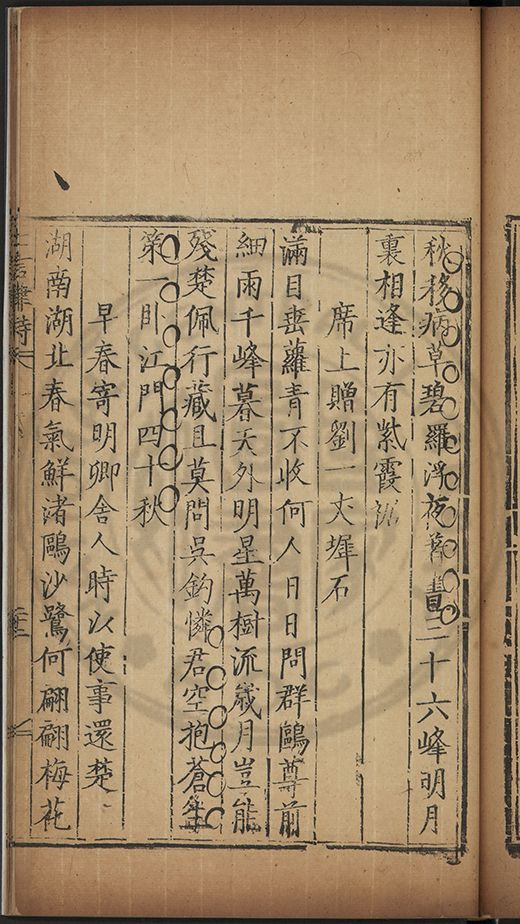 秋移病草碧羅浮夜奪青三十六峰明月
裏相逢亦有紫霞
席上贈劉一丈墀石
滿目垂蘿青不收何人日日問群鷗尊前
細雨千峰暮天外明星萬樹流歲月豈能
殘楚佩行藏且莫問吳鈎憐君空抱蒼生
策一臥江門四十秋
早春寄明卿舍人時以使事還楚
湖南湖北春氣鮮渚鷗沙鷺何翩翩梅花